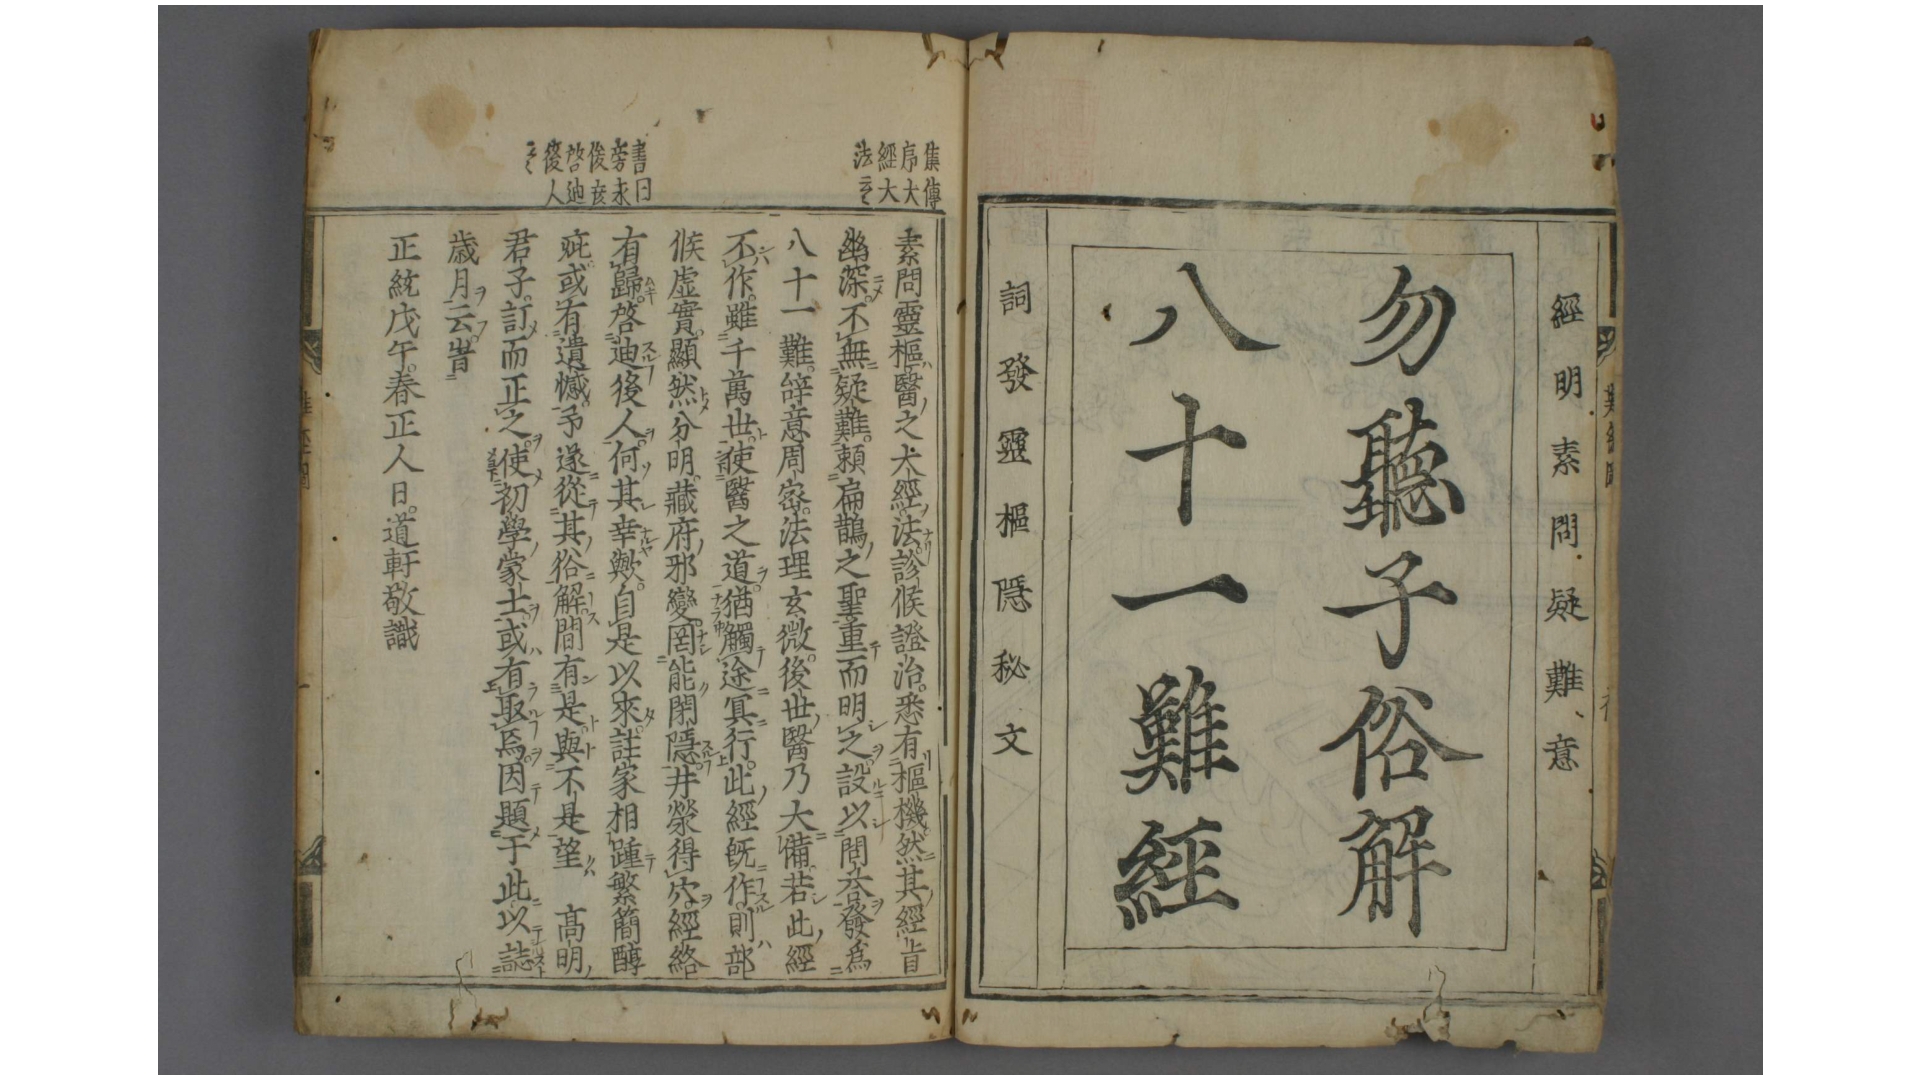 經明素問疑難意
勿聽子俗解
八十一難經
詞發靈樞隱秘文
集傳
序大
經大
法云云
素問靈樞醫之大經大法診候證治悉有樞機然其經旨
幽深不無疑難賴扁鵲之聖重而明之設以問荅發爲
八十一難辞意周密法理玄微後世醫乃大備若此經
不作雖千萬世使醫之道猶觸途冥行此經既作則部
候虛實顯然分明藏府邪變罔能閉隱井滎得穴經絡
有歸啓迪後人何其幸歟自是以來註家相踵繁簡醇
疵或有遺憾予遂從其俗解間有是與不是望 高明
君子訂而正之使初學蒙士或有取焉因題于此以誌
歲月云旹
正統戊午春正人日道軒敬識
書曰
旁求
俊彦
啓迪
後人
云云